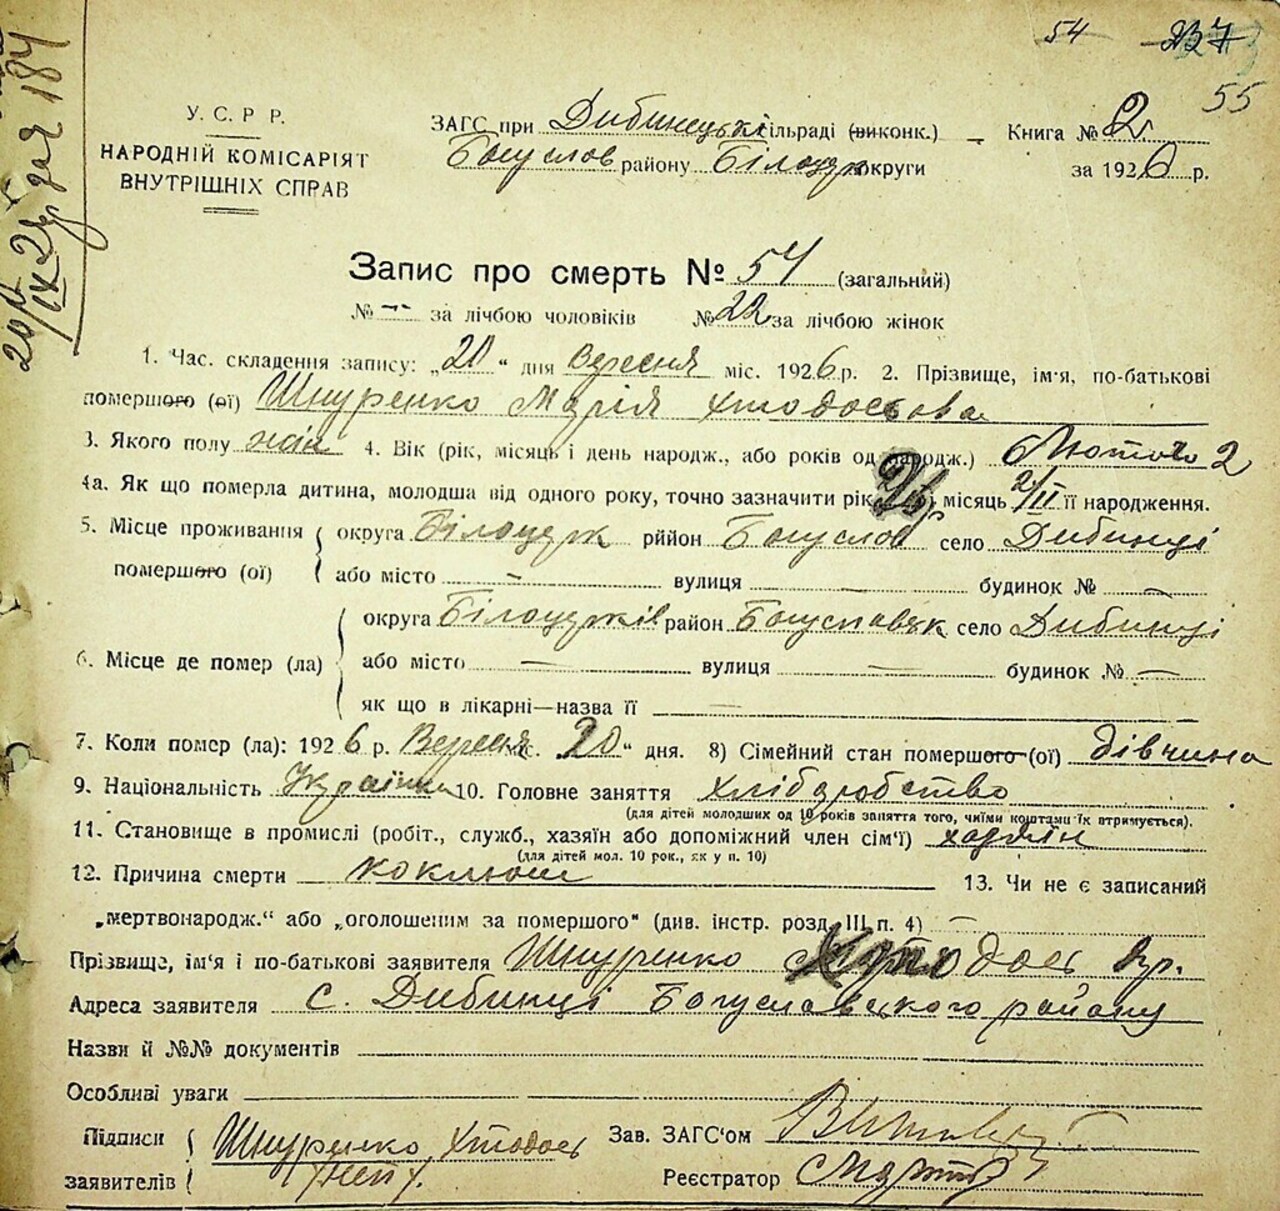 54 237
55
У. С. Р Р.
НАРОДНІЙ КОМІСАРІЯТ
ВНУТРІШНІХ СПРАВ
ЗАГС при Дибинецькі сільраді (виконк.)
Богуслов району Білоцерк округи
Книга № 2
за 1926 р.
Запис про смерть № 54 (загальний)
№ -- за лічбою чоловіків № 22 за лічбою жінок
1. Час. складення запису: „20“ дня Вересня міс. 1926 р. 2. Прізвище, ім'я, по-батькові
померш̶о̶г̶о̶ (ої) Шнуренко Марія Хтодосьова
3. Якого полу жін 4. Вік (рік, місяць і день народж., або років од народж.) Лютого 2
4а. Як що померла дитина, молодша від одного року, точно зазначити рік 26 місяць 2/II її народження.
5. Місце проживання округа Білоцерк рййон Богуслов село Дибинці
померш̶о̶г̶о̶ (ої) або місто — вулиця — будинок № —
округа Білоцерків район Богуславськ село Дибинці
6. Місце де помер (ла) або місто — вулиця — будинок № —
як що в лікарні—назва її —
7. Коли помер (ла): 1926 р. Вересня міс. 20“ дня. 8) Сімейний стан померш̶о̶г̶о̶ (ої) дівчина
9. Національність Українка 10. Головне заняття хліборобство
(для дітей молодших од 10 років заняття того, чиїми коштами їх втримується).
11. Становище в промислі (робіт., служб., хазяїн або допоміжний член сім'ї) хазяїн
(для дітей мол. 10 рок., як у п. 10)
12. Причина смерти коклюш 13. Чи не є записаний
„мертвонародж.“ або „оголошеним за помершого“ (див. інстр. розд. III п. 4) —
Прізвище, ім'я і по-батькові заявителя Шнуренко Хтодось
Адреса заявителя с. Дибинці Богуславського району
Назви й №№ документів
Особливі уваги
Підписи Шнуренко Хтодось Зав. ЗАГС'ом
заявителів (неп). Реєстратор